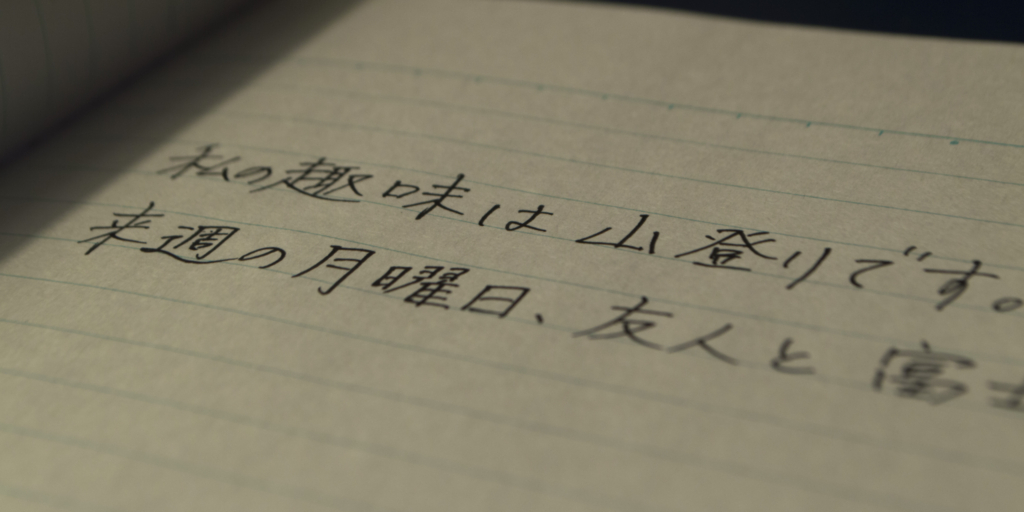 私の趣味は山登りです。
来週の月曜日、友人と富士